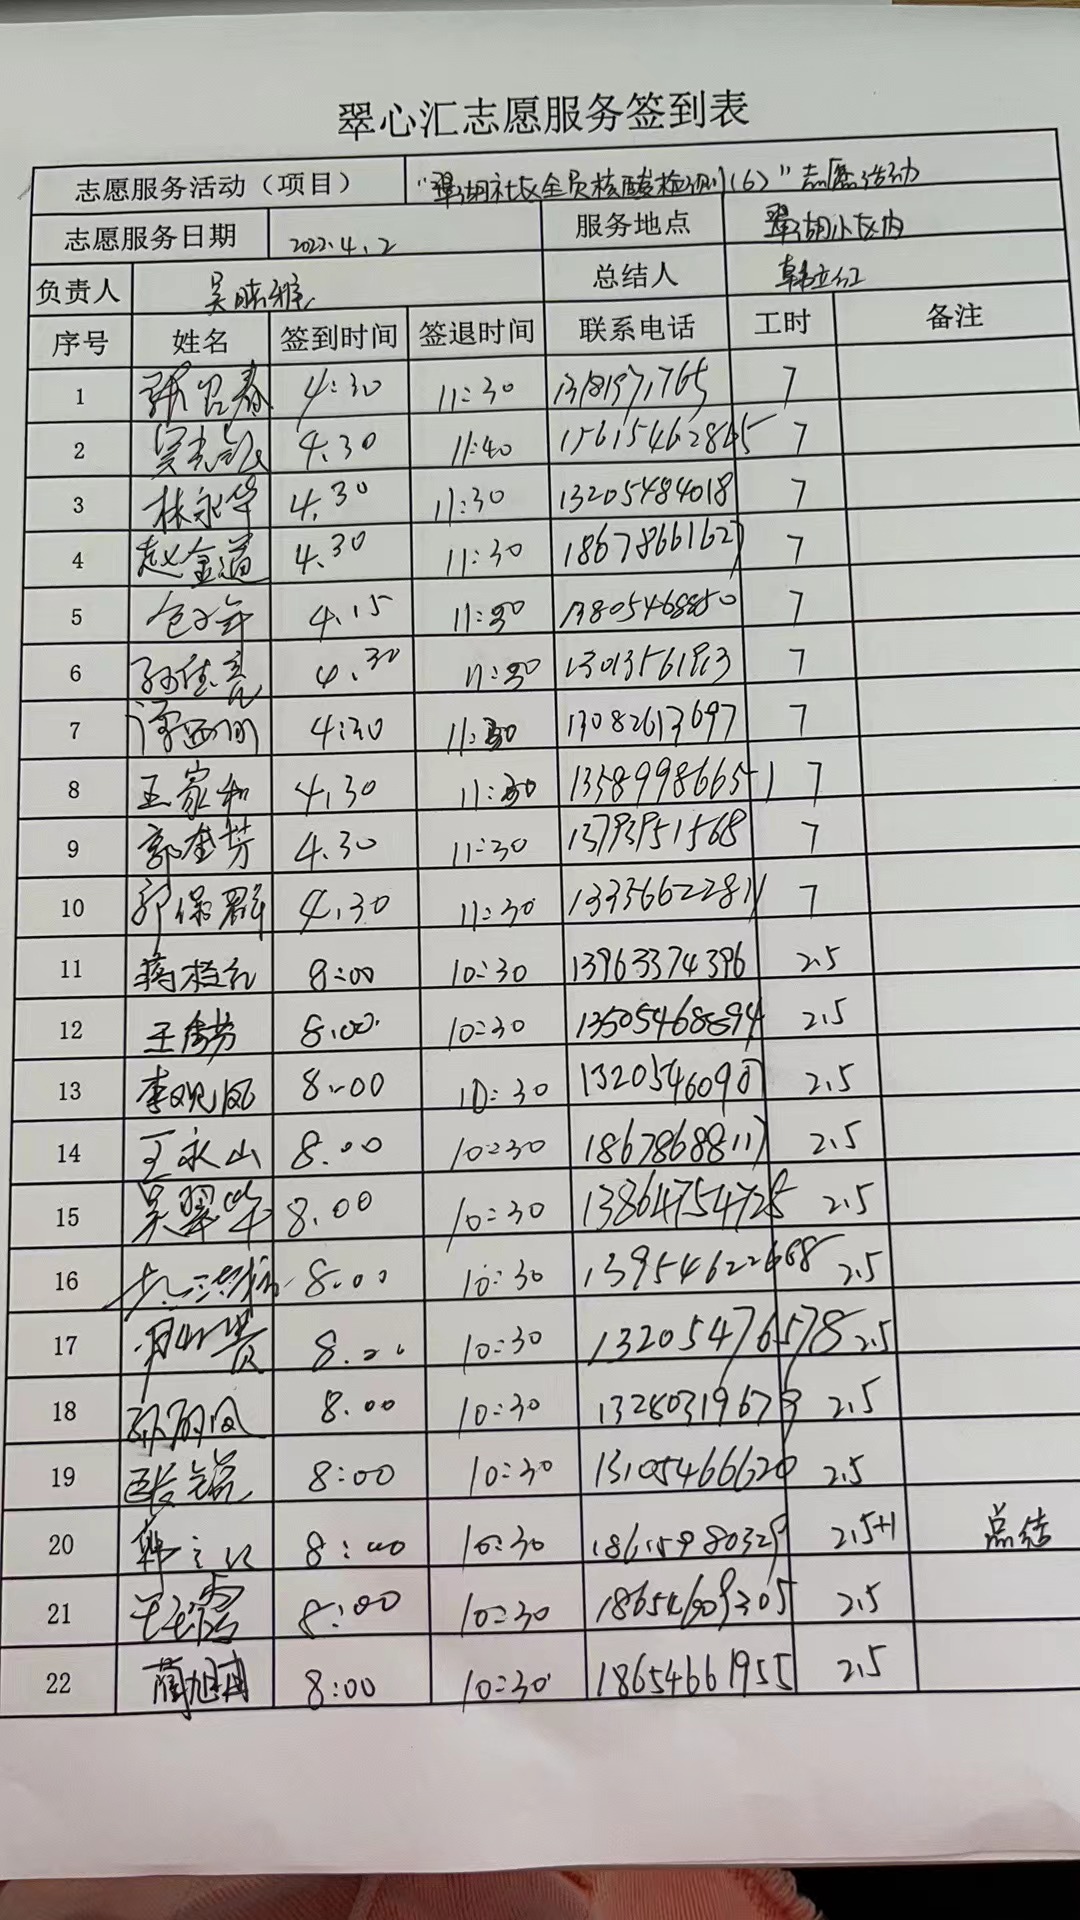 翠心汇志愿服务签到表
志愿服务活动（项目） "翠湖社区全员核酸检测(6)"志愿活动
志愿服务日期 2022.4.2 服务地点 翠湖小区内
负责人 吴 总结人 韩立红
序号 姓名 签到时间 签退时间 联系电话 工时 备注
1 春 4:30 11:30 7
2 4.30 11:40 7
3 林永华 4.30 11:30 13205484018 7
4 赵金道 4.30 11:30 18678661627 7
5 4.15 11:30 13805468850 7
6 孙佳亮 4.30 11:30 7
7 4:30 11:30 13082613697 7
8 王家和 4.30 11:30 13589986651 7
9 郭奎芳 4.30 11:30 13793951568 7
10 郭保群 4.30 11:30 13356622811 7
11 蒋桂礼 8:00 10:30 13963374396 2.5
12 王 8.00 10:30 13505468894 2.5
13 李观凤 8:00 10:30 2.5
14 王永山 8.00 10:30 18678688117 2.5
15 吴翠华 8.00 10:30 13864754728 2.5
16 8.00 10:30 13954622668 2.5
17 10:30 13205476578 2.5
18 孙丽凤 8.00 10:30 13280319679 2.5
19 8:00 10:30 13105466620 2.5
20 韩立红 8:00 10:30 18615980329 2.5+1 总结
21 王 8:00 10:30 18654609305 2.5
22 蔺旭冉 8:00 10:30 18654661955 2.5